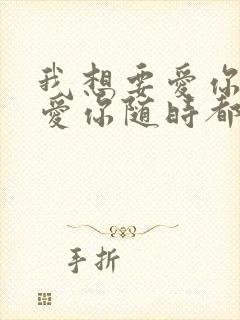 我想要爱你
爱你随时都
手折